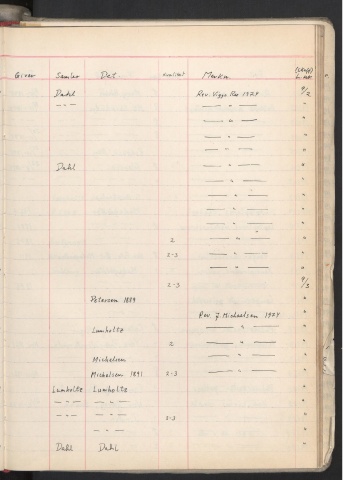 Giver Samler Det. Kvalitet Merkn.
Dahl Rev. Viggo Ree 1924 9/2
— " — — " — "
— " — "
— " — "
— " — "
Dahl — " — "
— " — "
— " — "
— " — "
— " — "
2 — " — "
2-3 — " — "
— " — "
2-3 9/3
Petersen 1889 "
Rev. J. Michaelsen 1924 "
Lumholtz — " — "
2 — " — "
Michelsen — " — "
Michelsen 1891 2-3 — " — "
Lumholtz Lumholtz "
— " — — " — "
— " — — " — 2-3 "
— " — "
Dahl Dahl "